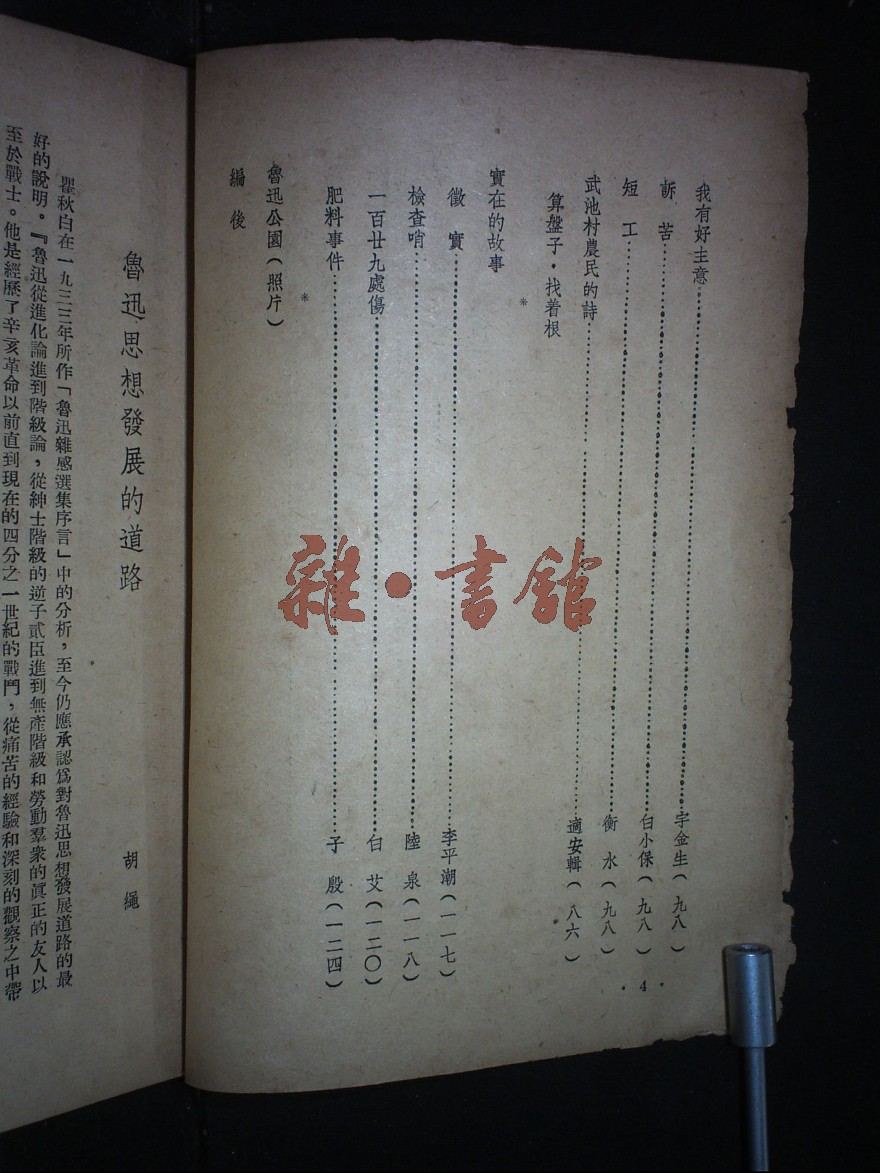 我有好主意……宇金生(九八)
訴苦……白小保(九八)
短工……衡水(九八)
武池村農民的詩……適安輯(八六)
算盤子·找着根
*
實在的故事
徵實……李平潮(一一七)
檢查哨……陸泉(一一八)
一百廿九處傷……白艾(一二〇)
肥料事件……子殷(一二四)
*
魯迅公園(照片)
編後
·4·
雜·書館
魯迅思想發展的道路
胡繩
瞿秋白在一九三三年所作「魯迅雜感選集序言」中的分析,至今仍應承認爲對魯迅思想發展道路的最
好的說明。『魯迅從進化論進到階級論,從紳士階級的逆子貳臣進到無產階級和勞動羣衆的眞正的友人以
至於戰士。他是經歷了辛亥革命以前直到現在的四分之一世紀的戰鬥,從痛苦的經驗和深刻的觀察之中帶